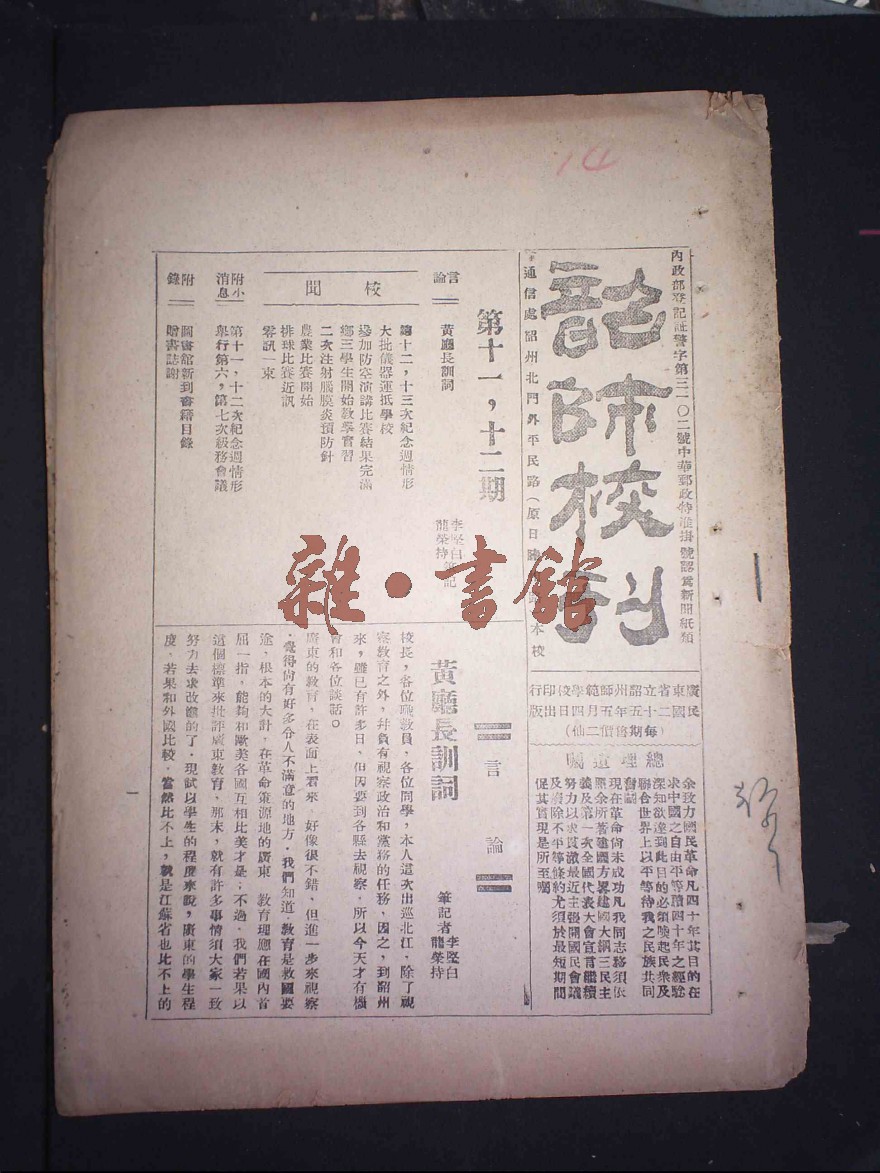 內政部登記証警字第三一〇二號中華郵政特准掛號認爲新聞紙類
韶師校刊
通信處韶州北門外平民路(原日
本校
廣東省立韶州師範學校印行
民國二十五年五月四日出版
(每期售價二仙)
總理遺囑
余致力國民革命凡四十年其目的在
求中國之自由平等積四十年之經驗
深知欲達到此目的必須喚起民衆及
聯合世界上以平等待我之民族共同
奮鬪
現在革命尙未成功凡我同志務須依
照余所著建國方畧建國大綱三民主
義及第一次全國代表大會宣言繼續
努力以求貫澈最近主張開國民會議
及廢除不平等條約尤須於最短期間
促其實現是所至囑
第十一,十二期
言論
黃廳長訓詞
李堅白筆記
龍榮持
校聞
第十二,十三次紀念週情形
大批儀器運抵學校
參加防空演講比賽結果完滿
鄉三學生開始敎學實習
二次注射腦膜炎預防針
農業比賽開始
排球比賽近訊
零訊一束
附小消息
第十一,十二次紀念週情形
舉行第六,第七次級務會議
附錄
圖書館新到書籍目錄
贈書誌謝
言論
黃廳長訓詞
筆記者 李堅白
龍榮持
校長,各位職敎員,各位同學,本人這次出巡北江,除了視
察敎育之外,幷負有視察政治和黨務的任務,因之,到韶州
來,雖已有許多日,但因要到各縣去視察,所以今天才有機
會和各位談話。
廣東的敎育,在表面上看來,好像很不錯,但進一步來視察
,覺得尙有好多令人不滿意的地方,我們知道,敎育是救國要
途,根本的大計,在革命策源地的廣東 敎育理應在國內首
屈一指,能夠和歐美各國互相比美才是;不過,我們若果以
這個標準來批評廣東敎育,那末,就有許多事情須大家一致
努力去求改進的了。現試以學生的程度來說,廣東的學生程
度,若果和外國比較,當然比不上,就是江蘇省也比不上的
一
雜·書館
14